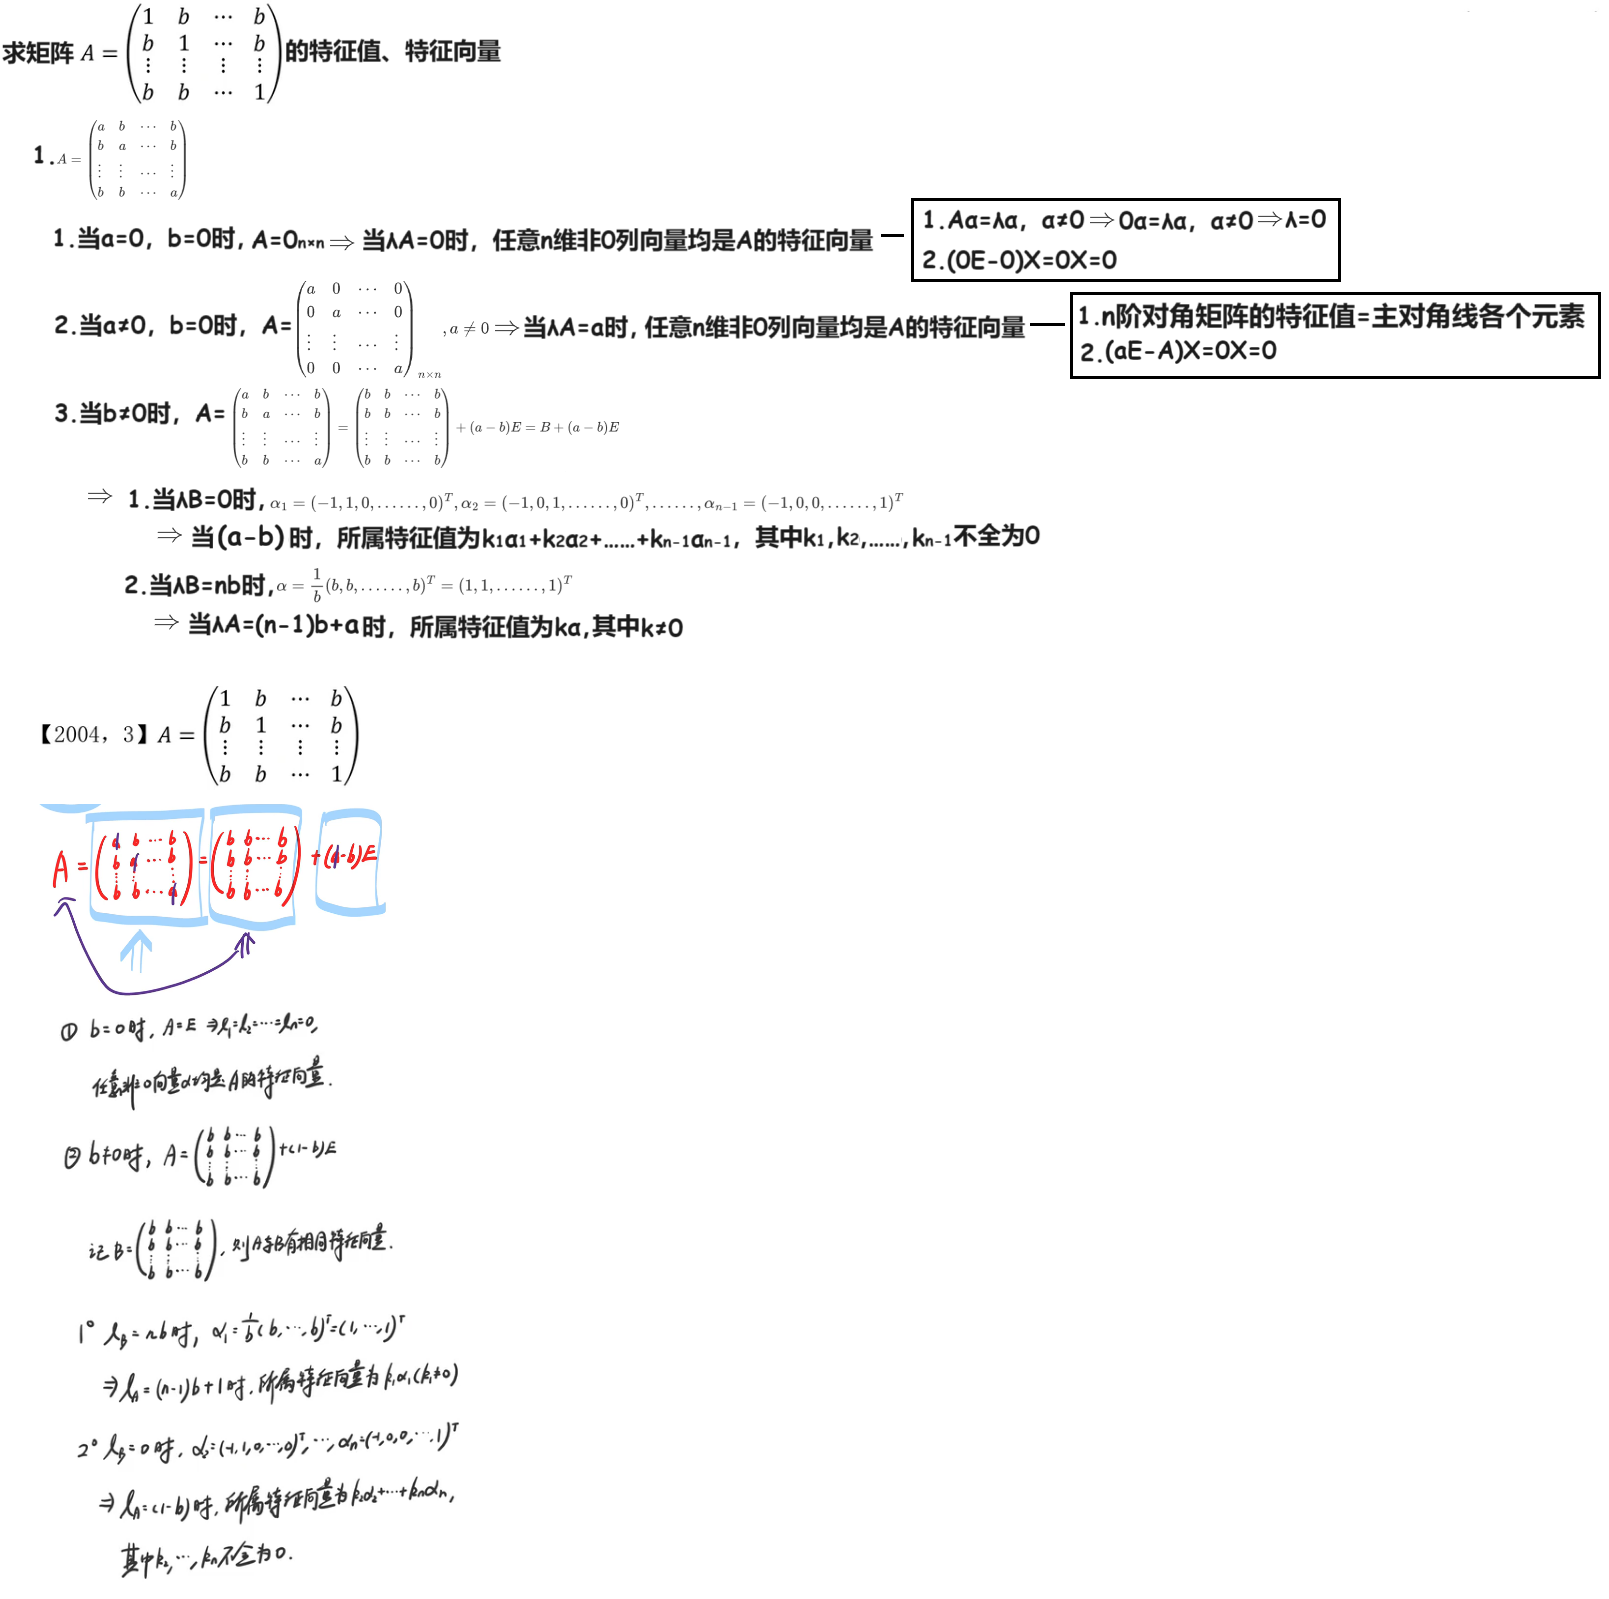 求矩阵 A = (1 b ⋯ b; b 1 ⋯ b; ⋮ ⋮ ⋮ ⋮; b b ⋯ 1) 的特征值、特征向量
1. A = (a b ⋯ b; b a ⋯ b; ⋮ ⋮ ⋯ ⋮; b b ⋯ a)
1.当a=0，b=0时, A=0n×n ⇒ 当λA=0时，任意n维非0列向量均是A的特征向量
1.Aα=λα，α≠0 ⇒ 0α=λα，α≠0 ⇒ λ=0
2.(0E-0)X=0X=0
2.当a≠0，b=0时，A= (a 0 ⋯ 0; 0 a ⋯ 0; ⋮ ⋮ ⋯ ⋮; 0 0 ⋯ a) n×n , a ≠ 0 ⇒ 当λA=a时, 任意n维非0列向量均是A的特征向量
1.n阶对角矩阵的特征值=主对角线各个元素
2.(aE-A)X=0X=0
3.当b≠0时，A= (a b ⋯ b; b a ⋯ b; ⋮ ⋮ ⋯ ⋮; b b ⋯ a) = (b b ⋯ b; b b ⋯ b; ⋮ ⋮ ⋯ ⋮; b b ⋯ b) + (a − b)E = B + (a − b)E
⇒ 1.当λB=0时, α₁ = (−1, 1, 0, ......, 0)ᵀ, α₂ = (−1, 0, 1, ......, 0)ᵀ, ......, αₙ₋₁ = (−1, 0, 0, ......, 1)ᵀ
⇒ 当(a-b)时，所属特征值为k₁α₁+k₂α₂+......+kₙ₋₁αₙ₋₁，其中k₁,k₂,......,kₙ₋₁不全为0
2.当λB=nb时, α = 1/b (b, b, ......, b)ᵀ = (1, 1, ......, 1)ᵀ
⇒ 当λA=(n-1)b+a时，所属特征值为kα,其中k≠0
【2004，3】A = (1 b ⋯ b; b 1 ⋯ b; ⋮ ⋮ ⋮ ⋮; b b ⋯ 1)
A = (a b ⋯ b; b a ⋯ b; ⋮ ⋮ ⋮; b b ⋯ a) = (b b ⋯ b; b b ⋯ b; ⋮ ⋮ ⋮; b b ⋯ b) + (a-b)E
① b=0时, A=E ⇒ λ₁=λ₂=⋯=λₙ=0,
任意非0向量α均是A的特征向量.
② b≠0时, A= (b b ⋯ b; b b ⋯ b; ⋮ ⋮ ⋮; b b ⋯ b) +(1-b)E
记B= (b b ⋯ b; b b ⋯ b; ⋮ ⋮ ⋮; b b ⋯ b), 则A与B有相同特征向量.
1° λB=nb时, α₁= 1/b (b,⋯,b)ᵀ=(1,⋯,1)ᵀ
⇒ λA=(n-1)b+1时, 所属特征向量为k₁α₁(k₁≠0)
2° λB=0时, α₂=(-1,1,0,⋯,0)ᵀ,⋯,αₙ=(-1,0,0,⋯,1)ᵀ
⇒ λA=(1-b)时, 所属特征向量为k₂α₂+⋯+kₙαₙ,
其中k₂,⋯,kₙ不全为0.